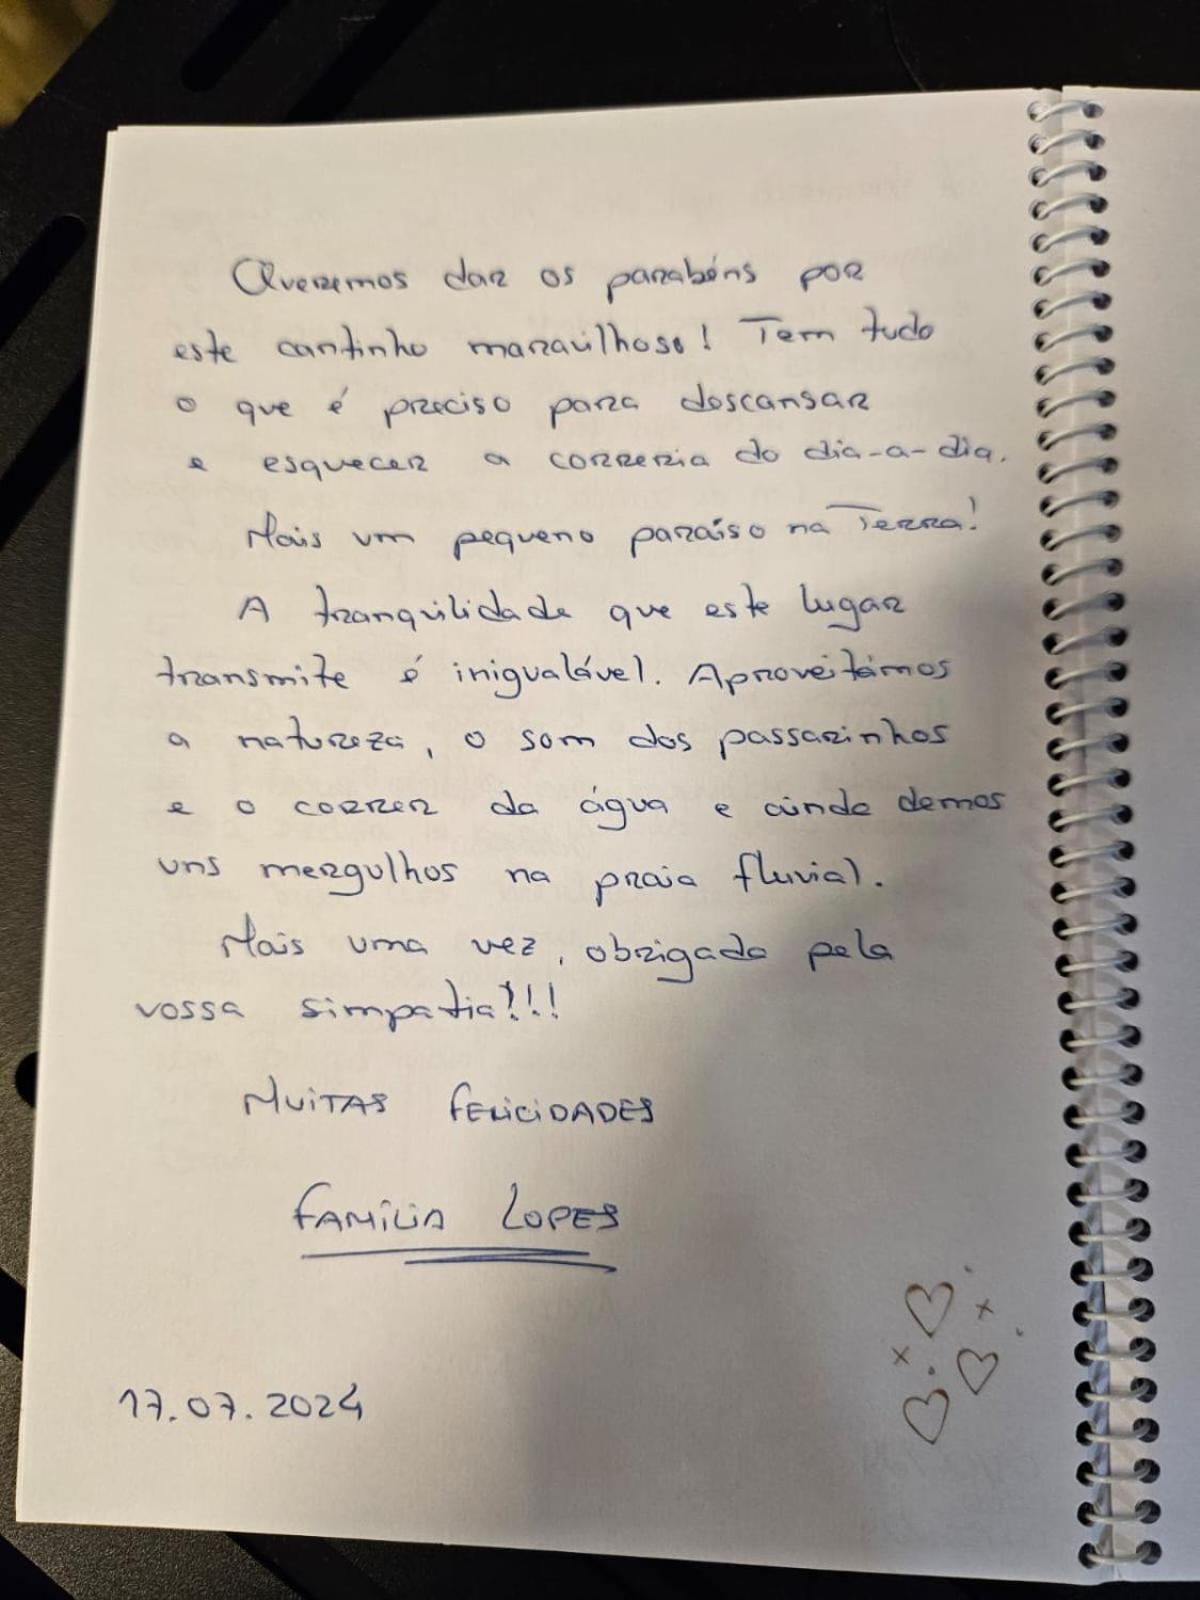 Queremos dar os parabéns por
este cantinho maravilhoso! Tem tudo
o que é preciso para descansar
e esquecer a correria do dia-a-dia.
Mais um pequeno paraíso na Terra!
A tranquilidade que este lugar
transmite é inigualável. Aproveitámos
a natureza, o som dos passarinhos
e o correr da água e ainda demos
uns mergulhos na praia fluvial.
Mais uma vez, obrigada pela
vossa simpatia!!!
MUITAS FELICIDADES
FAMÍLIA LOPES
17.07.2024